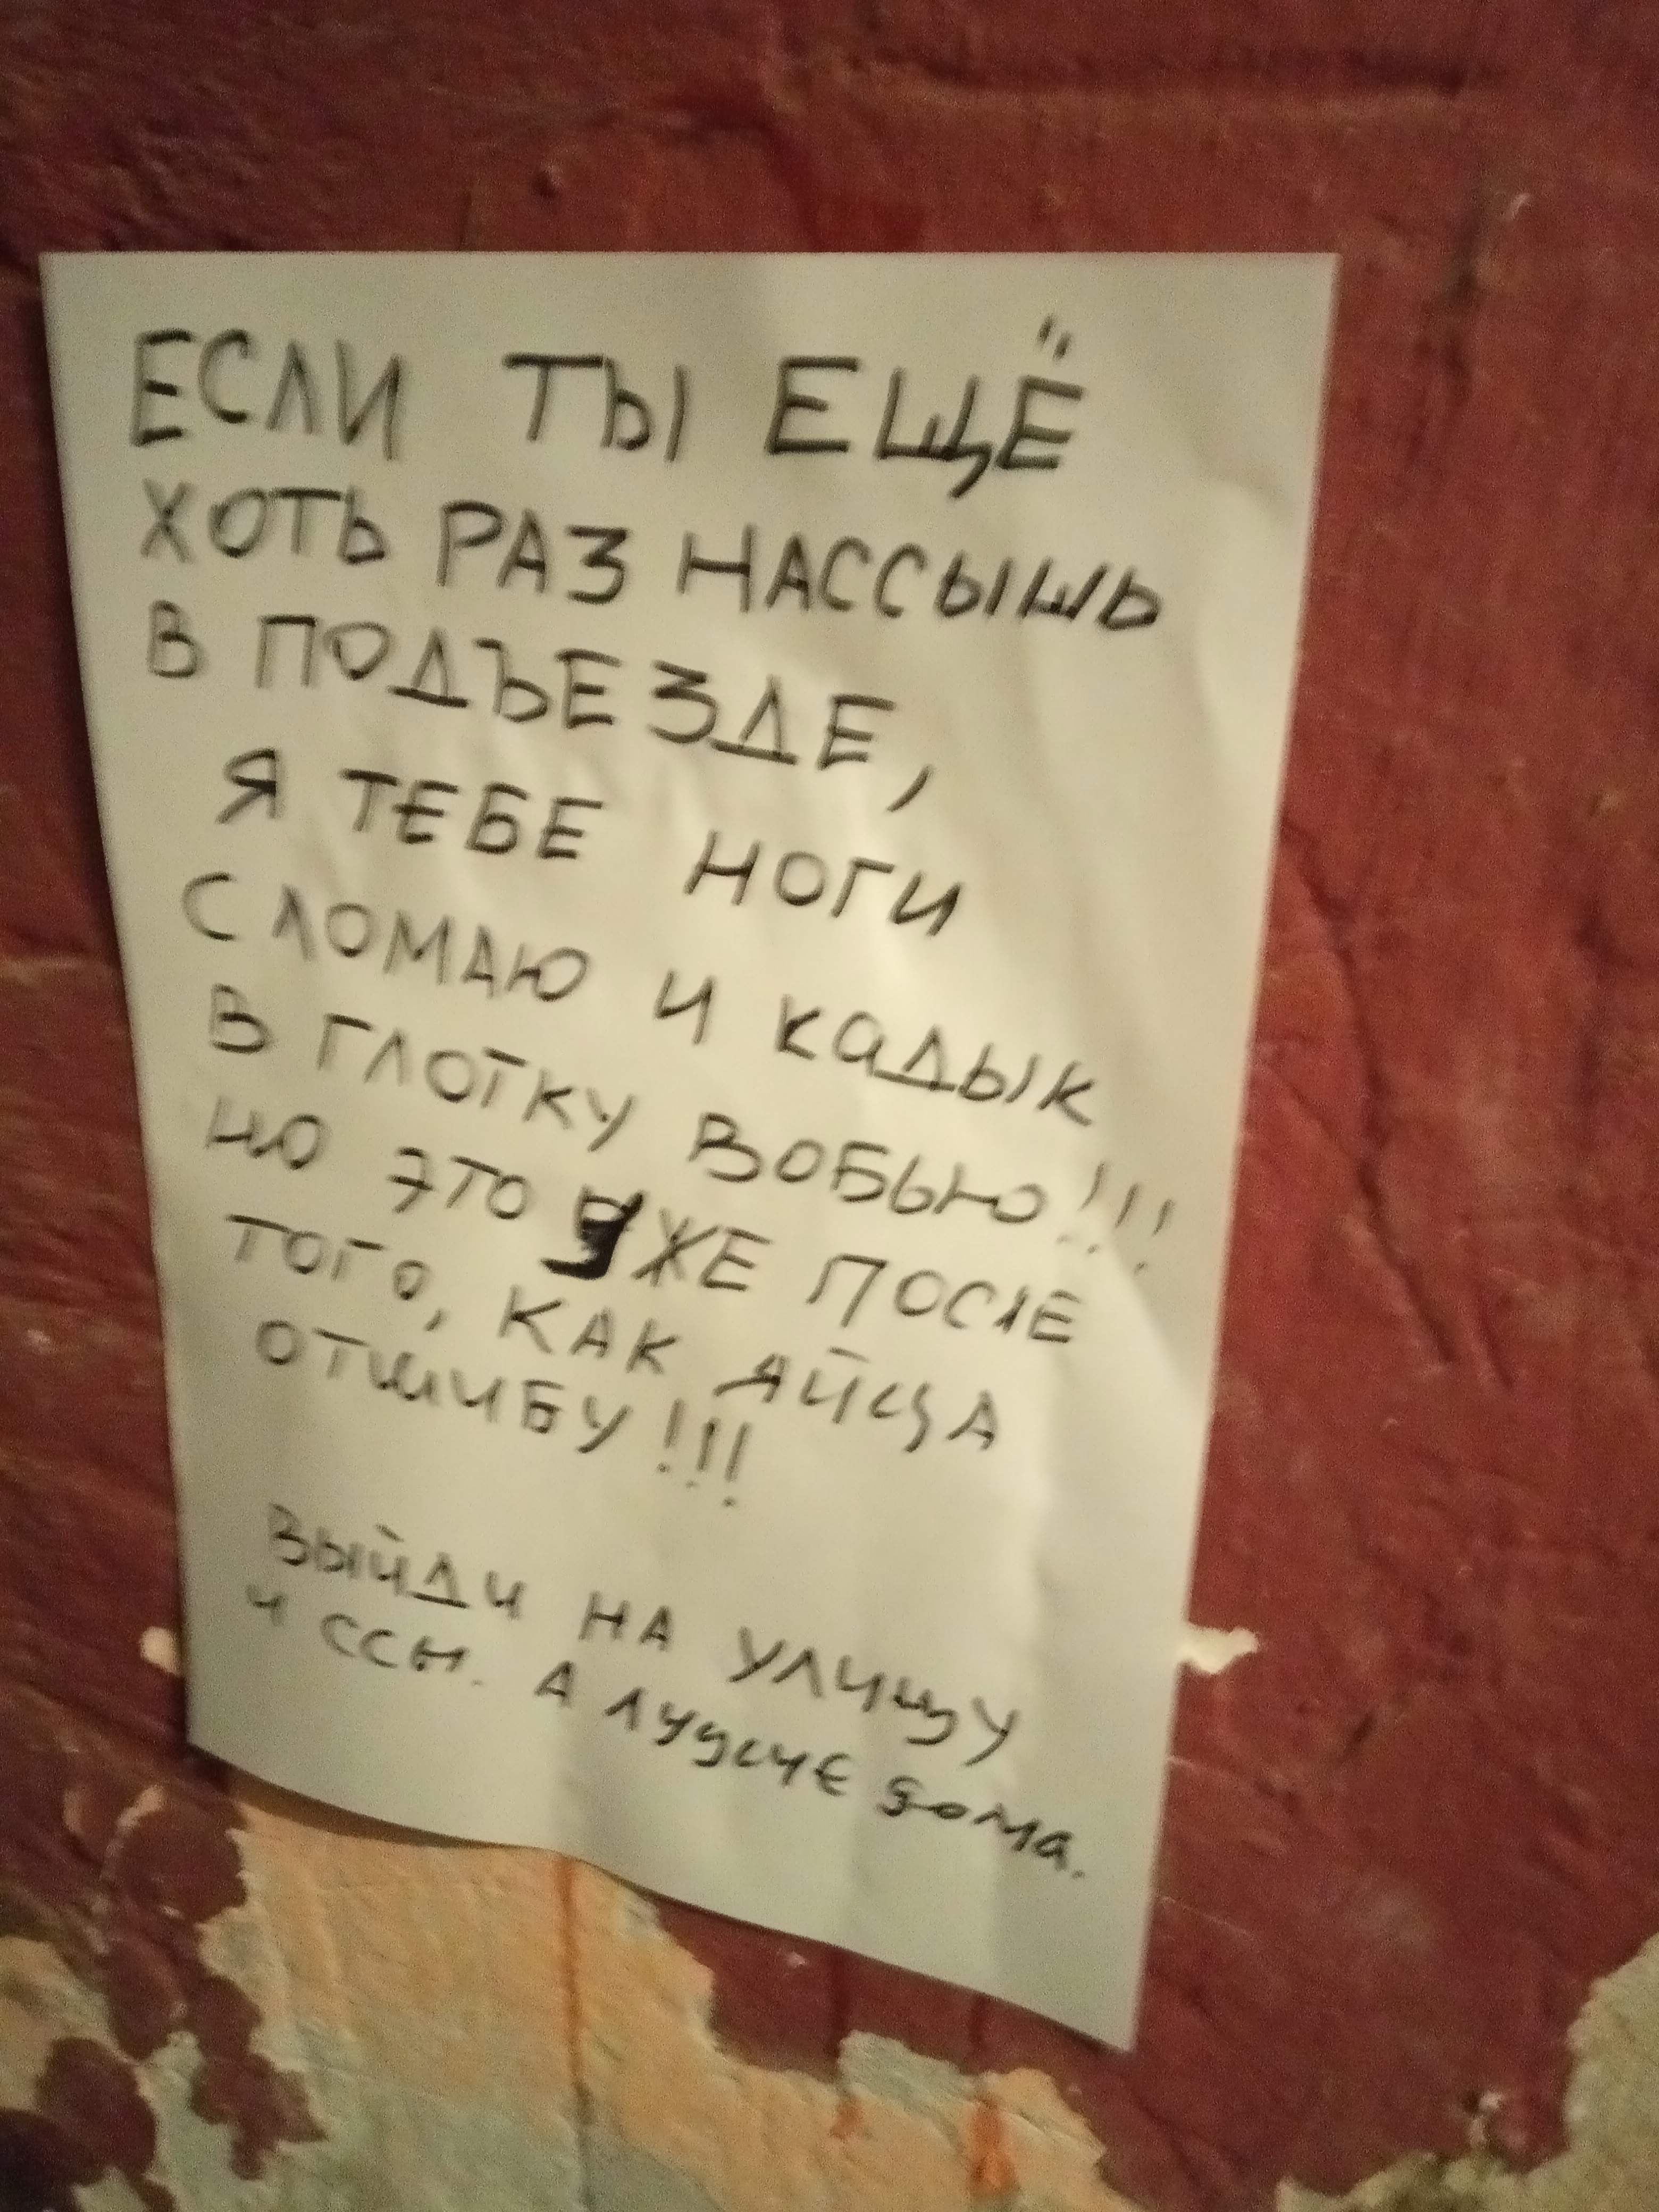 ЕСЛИ ТЫ ЕЩЁ
ХОТЬ РАЗ НАССЫШЬ
В ПОДЪЕЗДЕ,
Я ТЕБЕ НОГИ
СЛОМАЮ И КАДЫК
В ГЛОТКУ ВОБЬЮ!!!
НО ЭТО УЖЕ ПОСЛЕ
ТОГО, КАК ЯЙЦА
ОТШИБУ!!!
ВЫЙДИ НА УЛИЦУ
И ССЫ. А ЛУУСЧЕ дома.